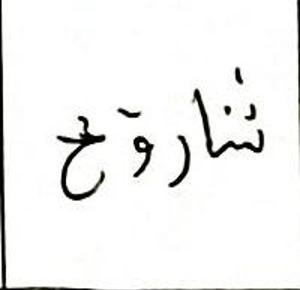 شاروخ